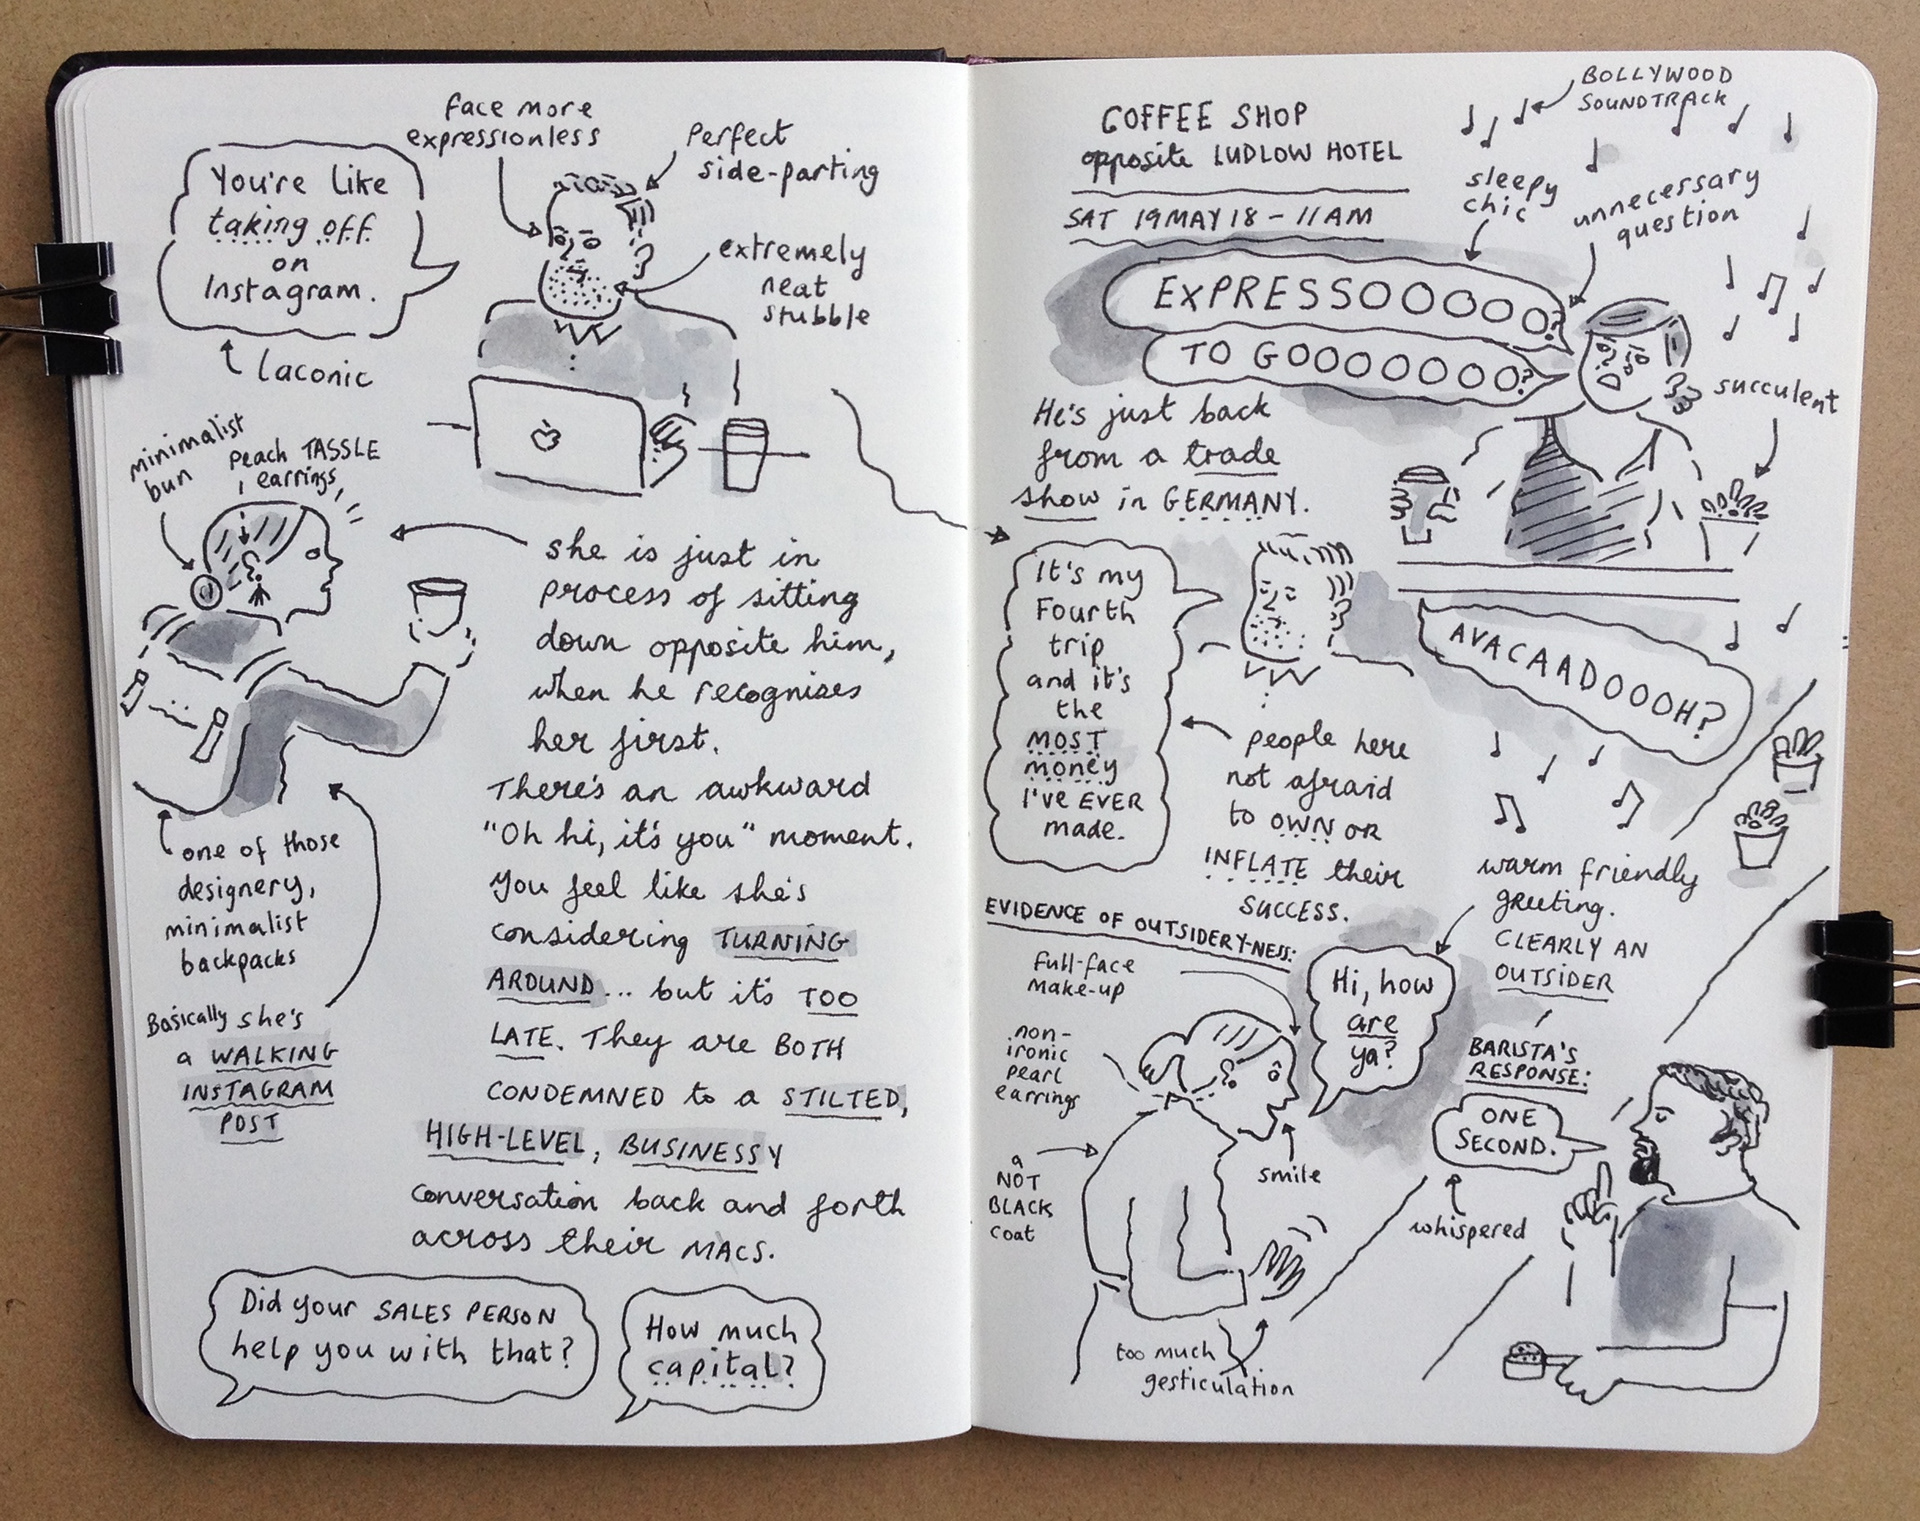 face more
expressionless
Perfect
side-parting
You're like
taking off
on
Instagram.
extremely
neat
stubble
laconic
minimalist
bun
Peach TASSLE
earrings
she is just in
process of sitting
down opposite him,
when he recognises
her first.
There's an awkward
"Oh hi, it's you" moment.
You feel like she's
considering TURNING
AROUND... but it's TOO
LATE. They are BOTH
CONDEMNED to a STILTED,
HIGH-LEVEL, BUSINESSY
conversation back and forth
across their MACS.
one of those
designery,
minimalist
backpacks
Basically she's
a WALKING
INSTAGRAM
POST
Did your SALES PERSON
help you with that?
How much
capital?
COFFEE SHOP
opposite LUDLOW HOTEL
SAT 19 MAY 18 - 11AM
BOLLYWOOD
SOUNDTRACK
sleepy
chic
unnecessary
question
EXPRESSOOOOO?
TO GOOOOOOO?
succulent
He's just back
from a trade
show in GERMANY.
It's my
Fourth
trip
and it's
the
MOST
money
I've EVER
made.
AVACAADOOOH?
people here
not afraid
to OWN OR
INFLATE their
SUCCESS.
warm friendly
greeting.
CLEARLY AN
OUTSIDER
EVIDENCE OF OUTSIDERY-NESS:
Full-face
make-up
Hi, how
are
ya?
non-
ironic
pearl
earrings
BARISTA'S
RESPONSE:
ONE
SECOND.
a
NOT
BLACK
coat
smile
whispered
too much
gesticulation